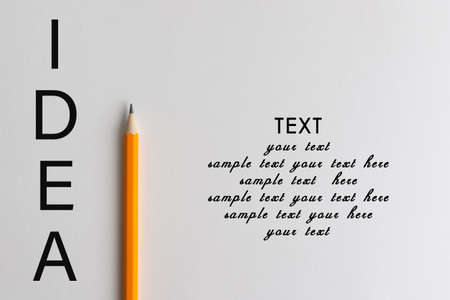 I
D
E
A
TEXT
your text
sample text your text here
sample text here
sample text your text here
sample text your text here
your text